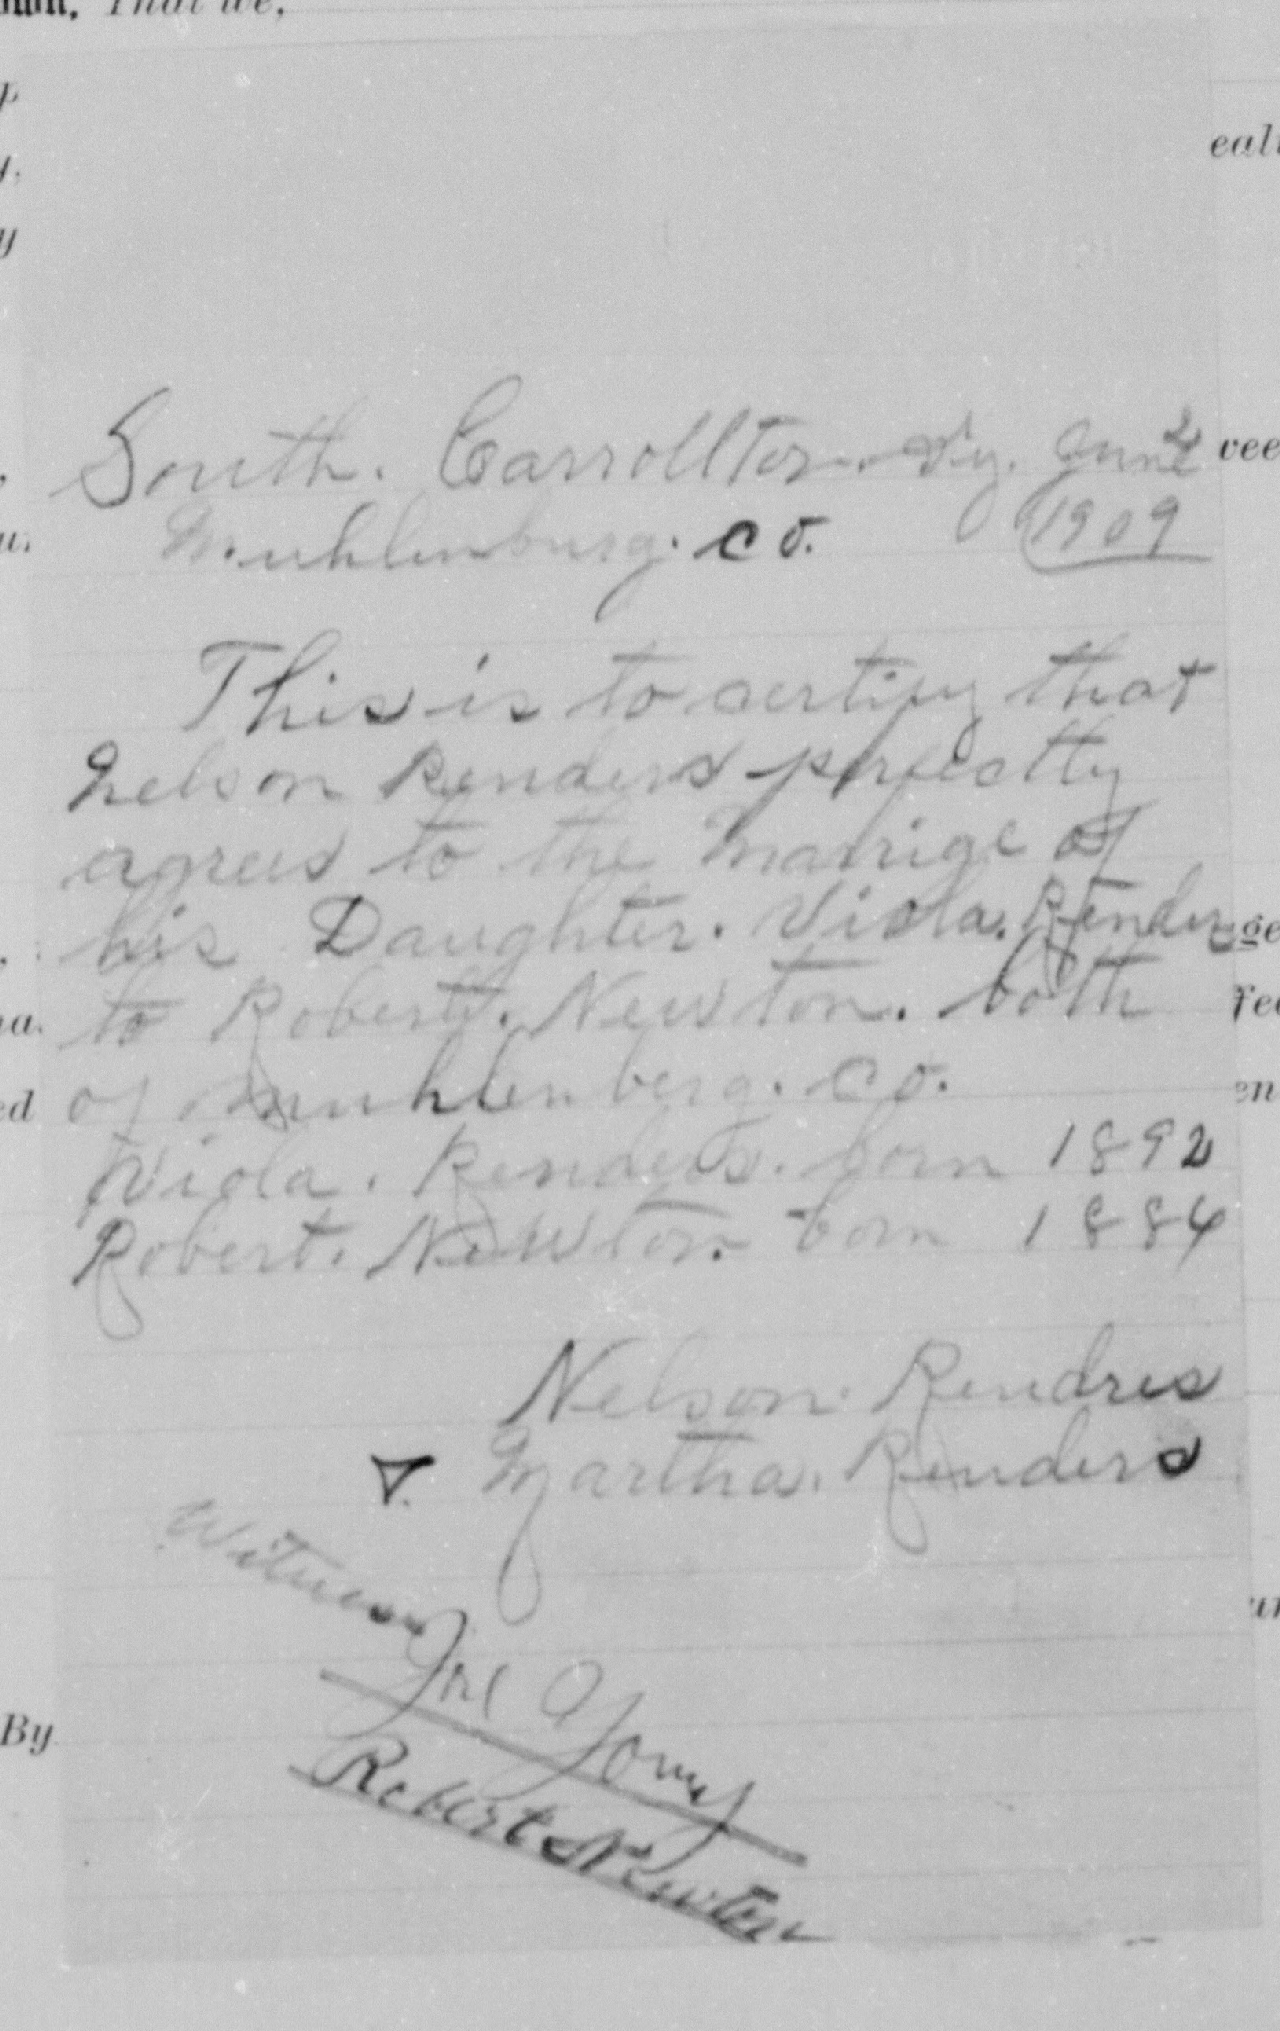 That we,
South. Carrollton. Ky. June 2
Muhlenburg. co. 1909
This is to certify that
Nelson Renders perfectly
agrees to the Marrige of
his Daughter. Viola. Renders
to Robert. Newton. both
of Muhlenberg. co.
Viola. Renders. born 1892
Robert. Newton. born 1884
Nelson. Rendres
Martha. Renders
Witness
Joe
Robert Newton
By